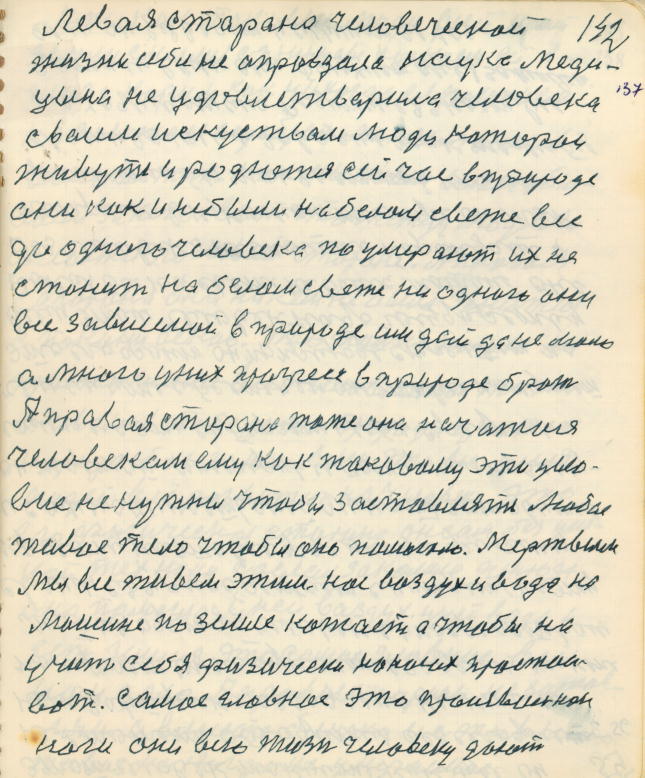 Левая старана человеческой 142
жизни себя не оправдала наука Меди- 137
цына не удовлетварила человека
сваим искуствам люди которои
живути и родются сей час в природе
ани как и небыли на белом свете все
до одного человека по умирают их не
станит на белом свете ни одного они
все зависимои в природе им дай да не мало
а много у них прогресс в природе брат
А правая старана тоже она начатоя
человекам ему как таковому эти усло-
вие не нужны чтобы заставляти любое
живое тело чтобы оно помогло. Мертвым
Мы все живем этим. нас воздух и вода на
машине по земле катает а чтобы на
учить себя физически на ногих простои-
вот. самое главное это
ноги они всю жизн человеку дают